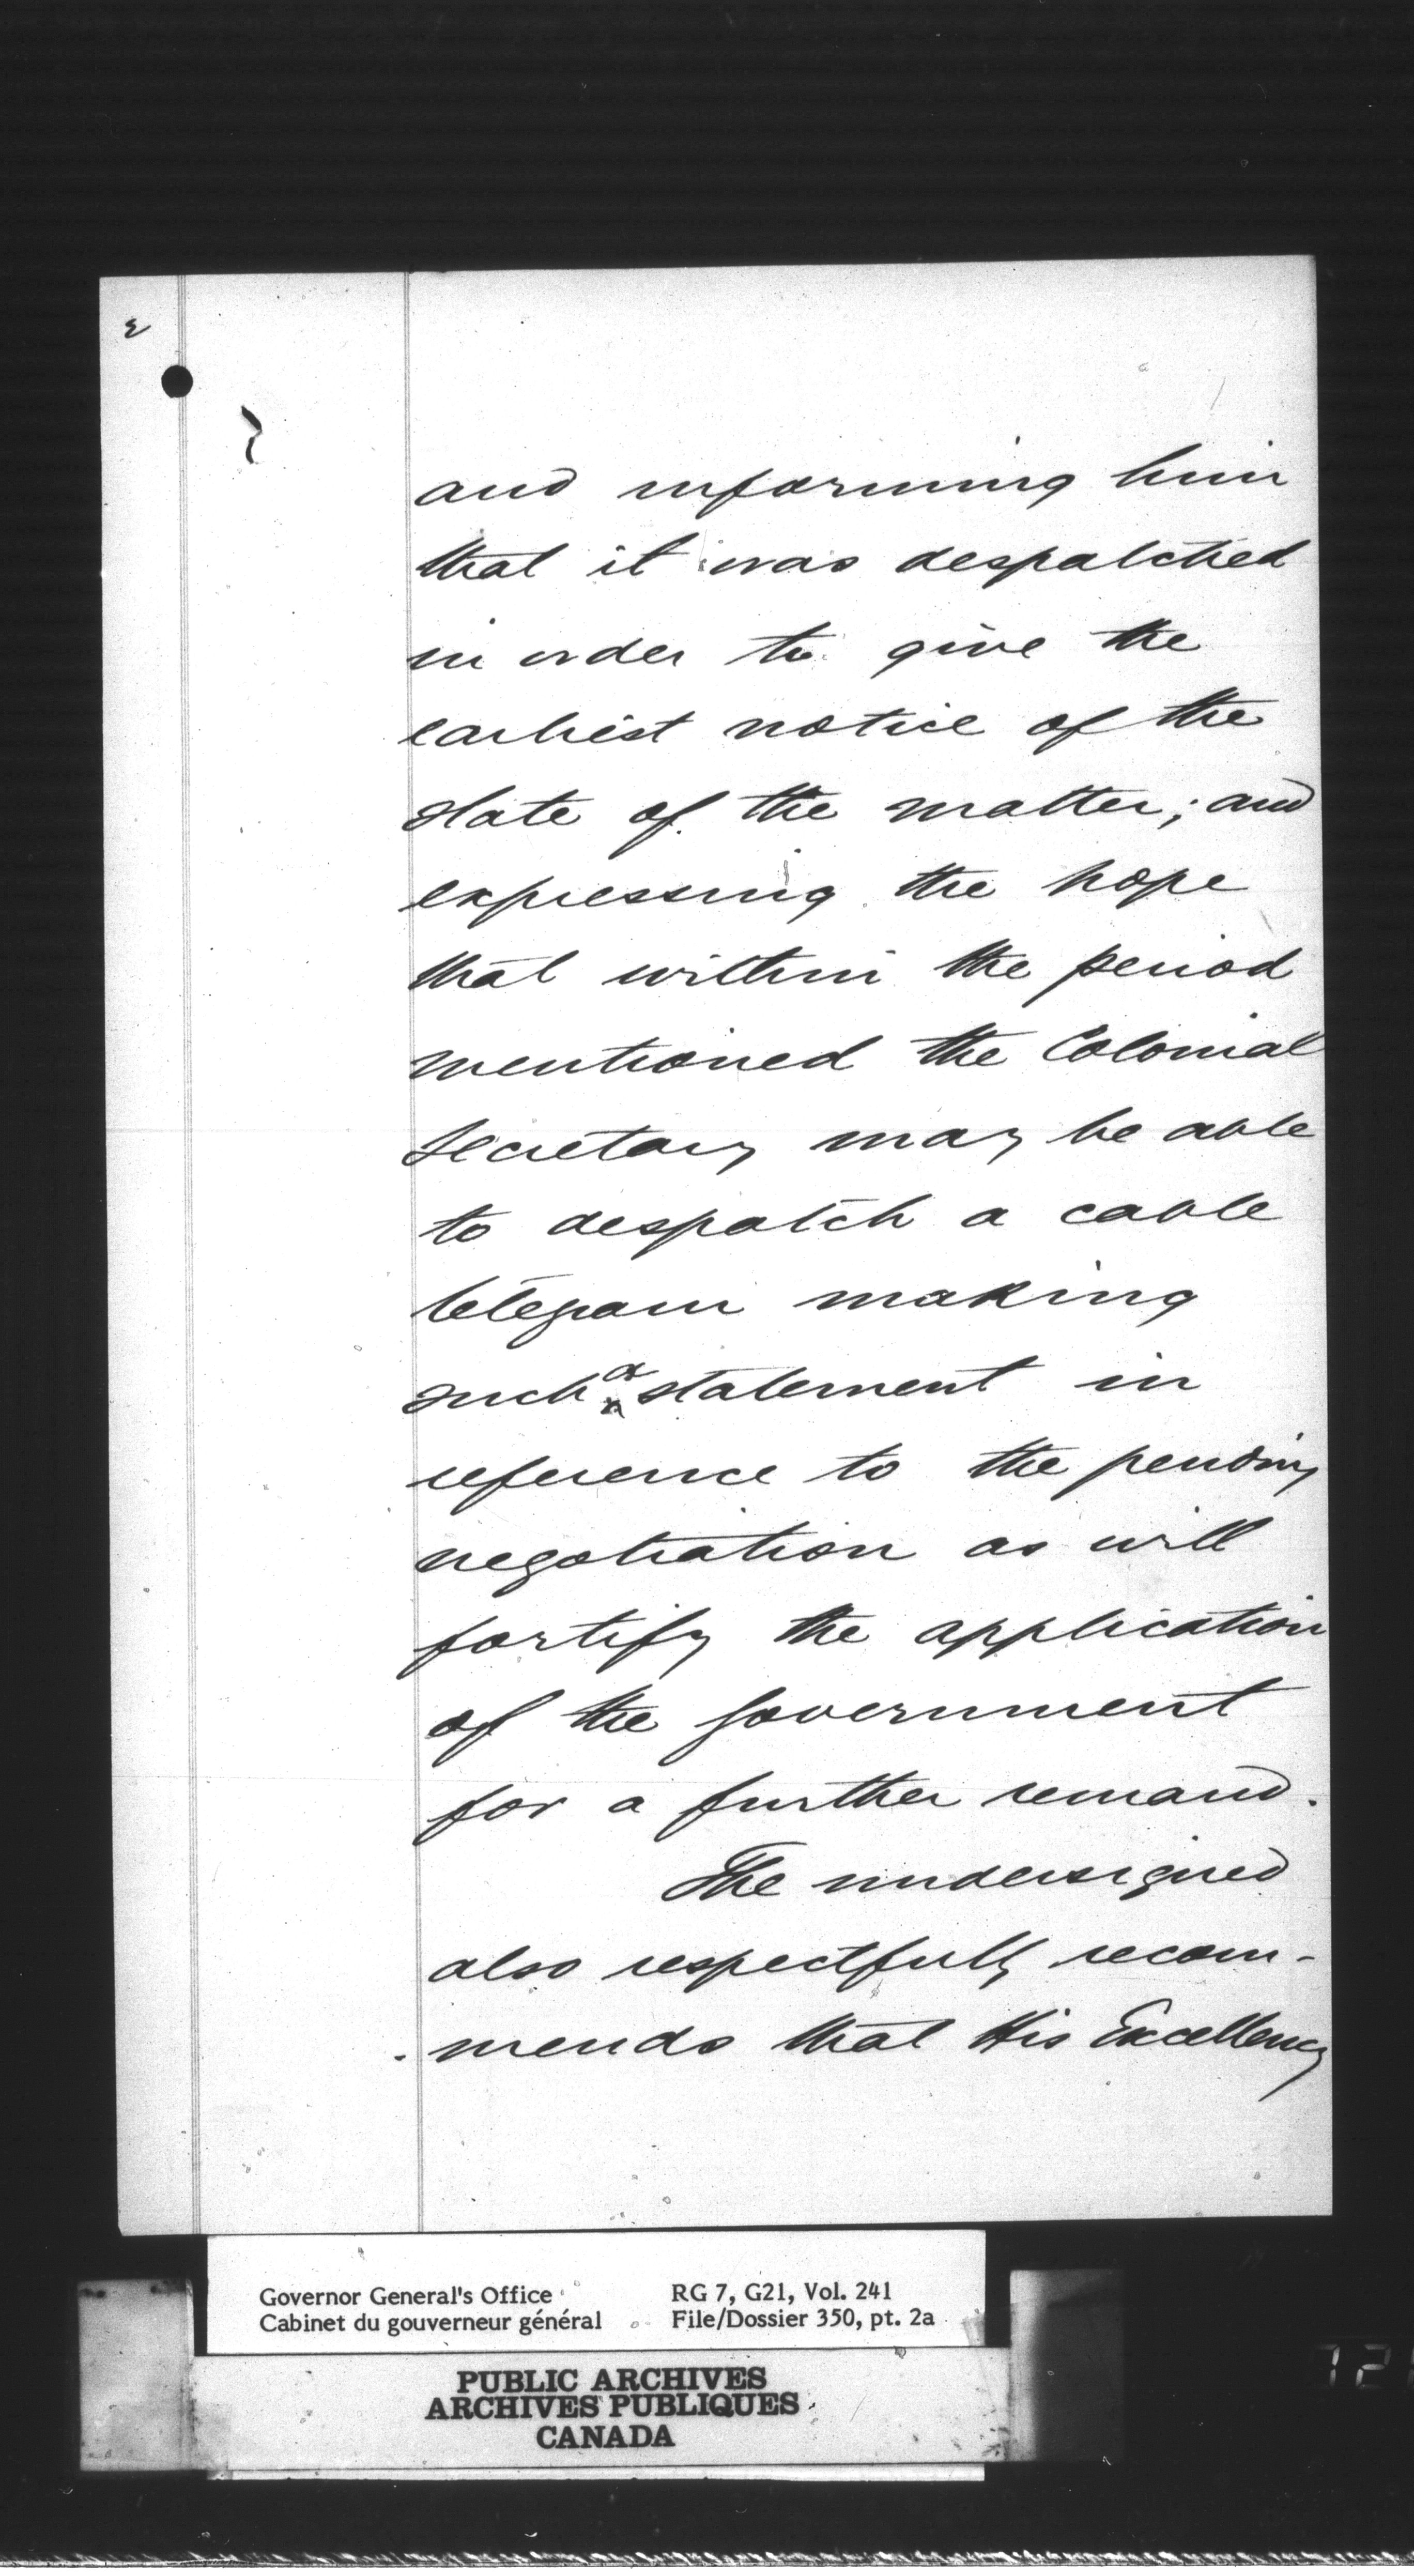 and informing him
that it was despatched
in order to give the
earliest notice of the
state of the matter; and
expressing the hope
that within the period
mentioned the Colonial
Secretary may be able
to despatch a cable
telegram making
such a statement in
reference to the pending
negotiation as will
fortify the application
of the Government
for a further remand.
The undersigned
also respectfully recom-
mends that His Excellency
Governor General's Office RG 7, G21, Vol. 241
Cabinet du gouverneur général File/Dossier 350, pt. 2a
PUBLIC ARCHIVES
ARCHIVES PUBLIQUES
CANADA